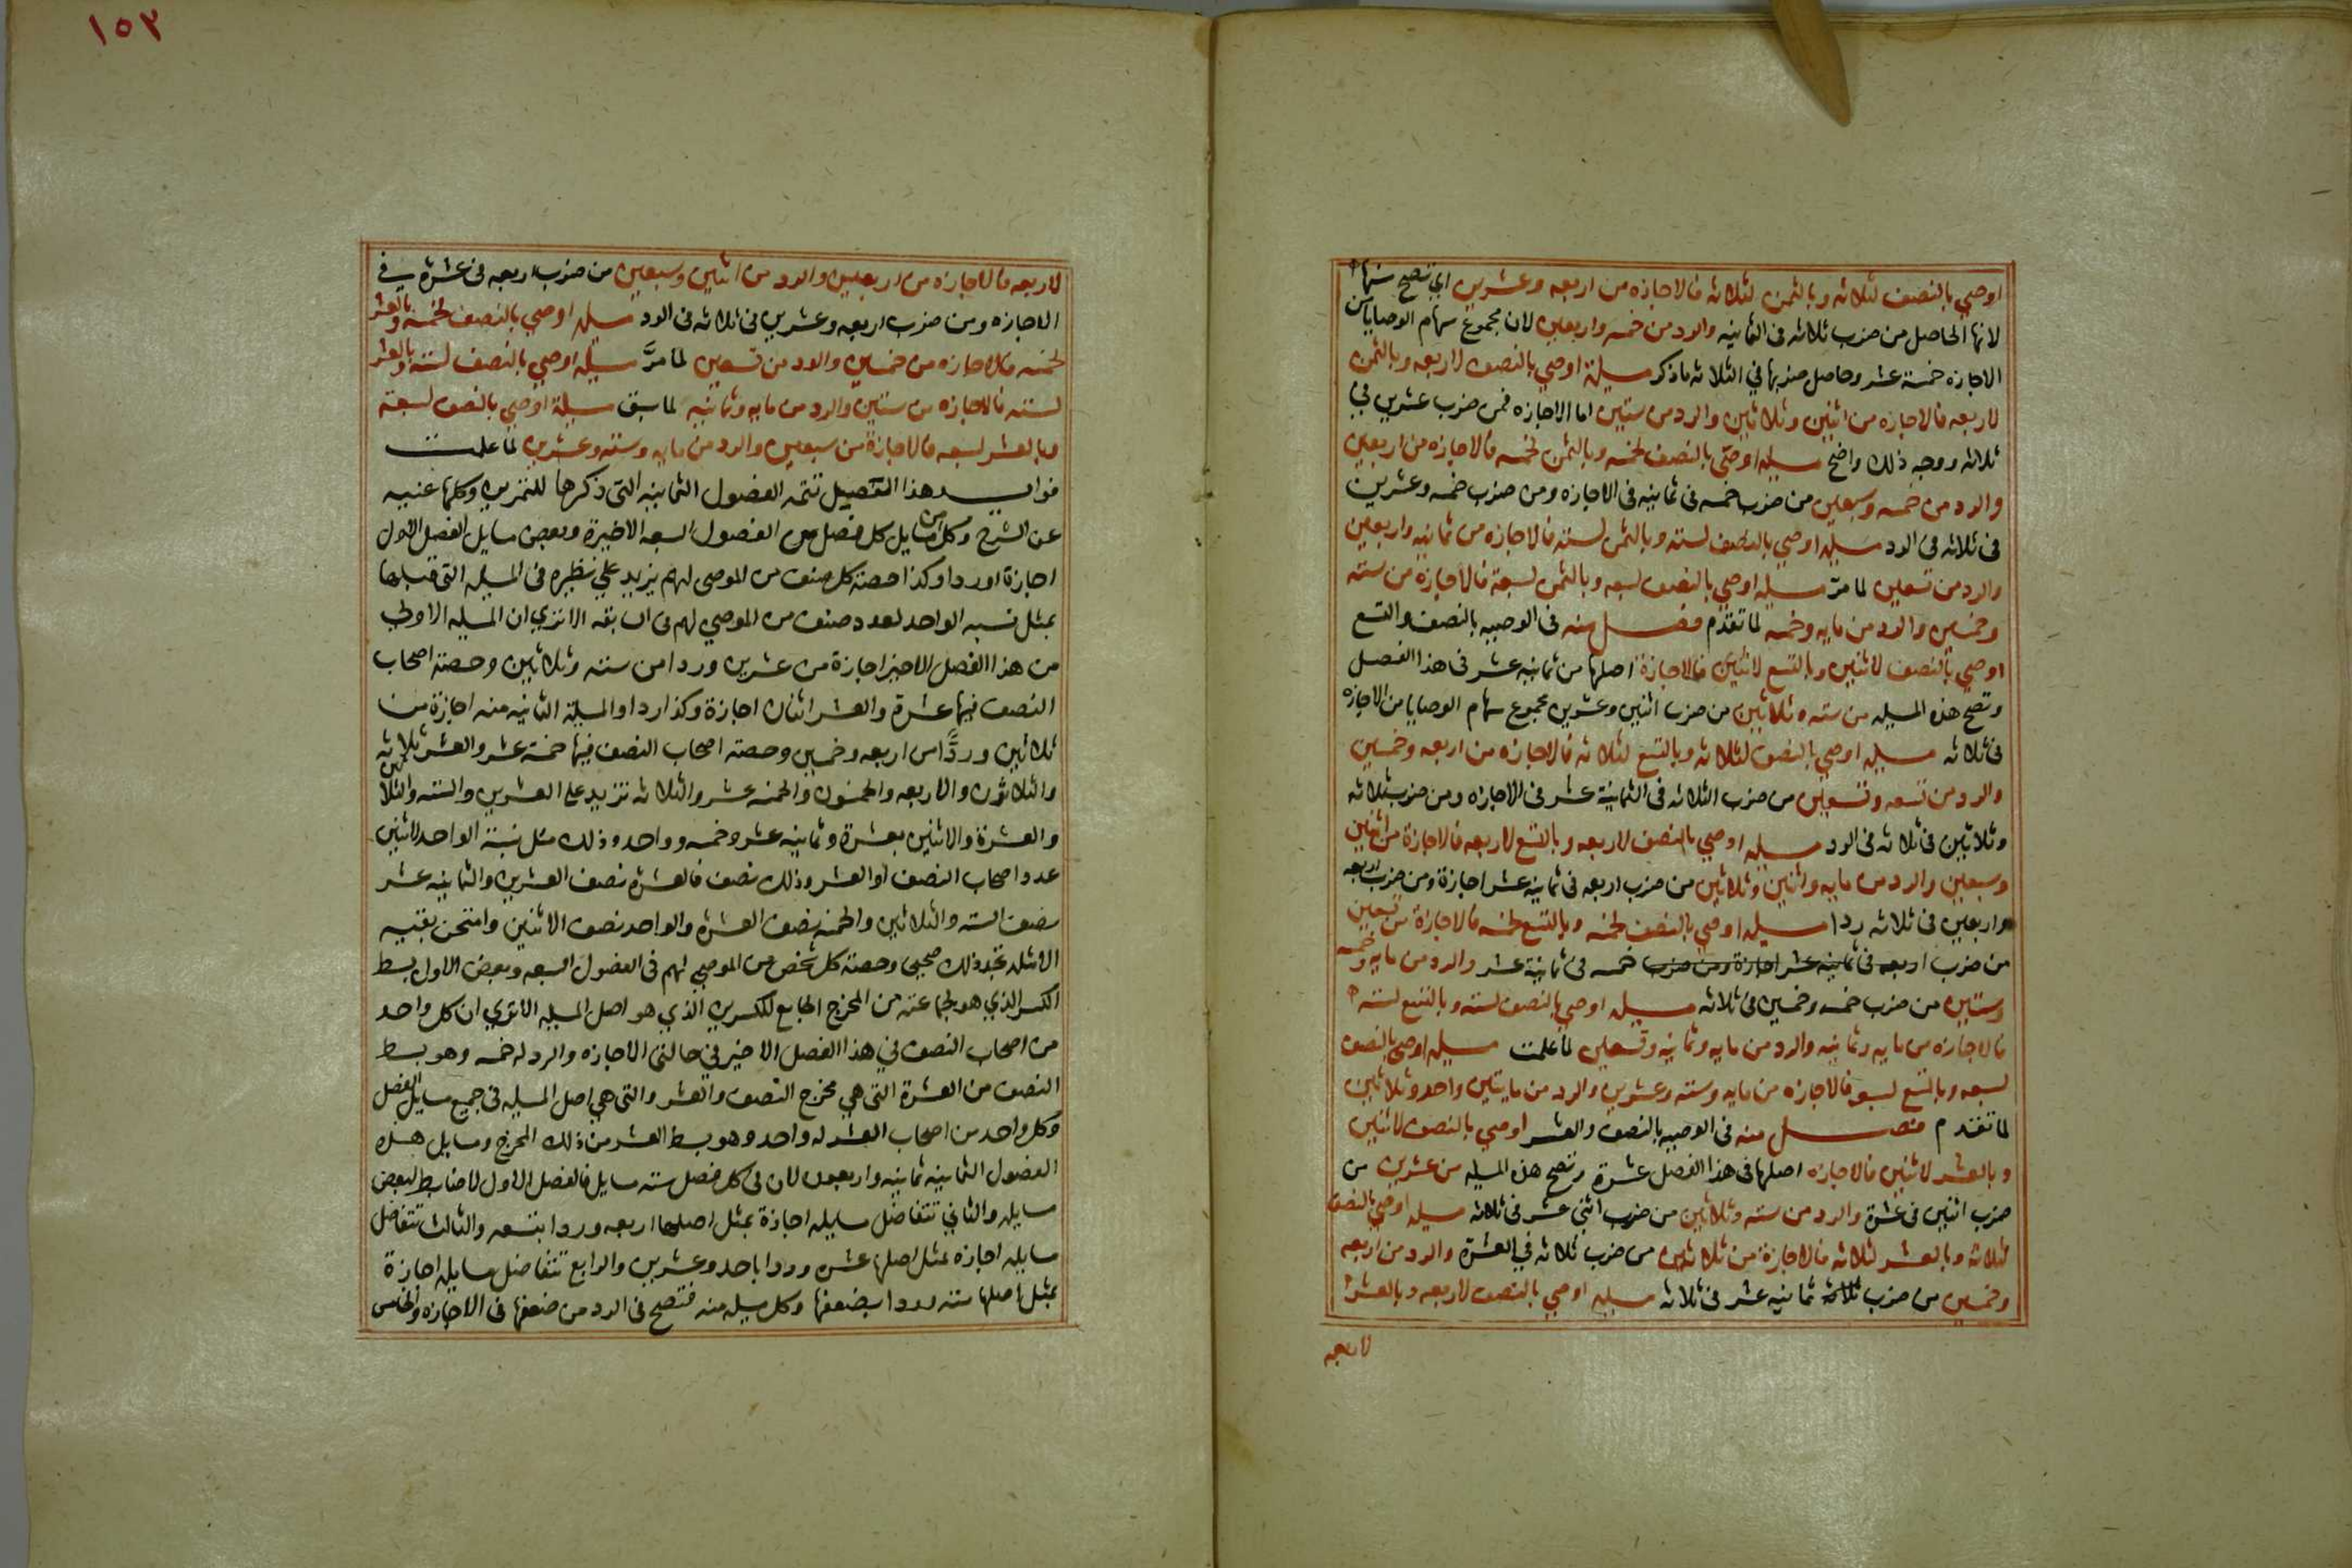 اوصي بالنصف لثلاثه وبالثمن لثلاثه فالاجازه من اربعه وعشرين اي تصح منها
لانها الحاصل من ضرب ثلاثه فى الثمانيه والرد من خمسه واربعين لان مجموع سهام الوصايا من
الاجازه خمسة عشر وحاصل ضربها في الثلاثه ماذكر مسيلة اوصي بالنصف لاربعه وبالثمن
لاربعه فالاجازه من اثنين وثلاثين والرد من ستين اما الاجازه فمن ضرب عشرين في
ثلاثه ووجه ذلك واضح مسيله اوصى بالنصف لخمسه وبالثمن لخمسه فالاجازه من اربعين
والرد من خمسه وسبعين من ضرب خمسه فى ثمانيه فى الاجازه ومن ضرب خمسه وعشرين
فى ثلاثه فى الرد مسيله اوصي بالنصف لسته وبالثمن لسته فالاجازه من ثمانيه واربعين
والرد من تسعين لما مرّ مسيله اوصي بالنصف لسبعه وبالثمن لسبعة فالاجازه من سته
وخمسين والرد من مايه وخمسه لما تقدم فصل منه فى الوصيه بالنصف والتسع
اوصي بالنصف لاثنين وبالتسع لاثنين فالاجازة اصلها من ثمانيه عشر فى هذا الفصل
وتصح هذه المسيله من سته وثلاثين من ضرب اثنين وعشرين مجموع سهام الوصايا من الاجازه
فى ثلاثه مسيله اوصي بالنصف لثلاثه وبالتسع لثلاثه فالاجازه من اربعه وخمسين
والرد من تسعه وتسعين من ضرب الثلاثه فى الثمانية عشر فى الاجازه ومن ضرب ثلاثه
وثلاثين فى ثلاثه فى الرد مسيله اوصي بالنصف لاربعه وبالتسع لاربعه فالاجازة من اثنين
وسبعين والرد من مايه واثنين وثلاثين من ضرب اربعه فى ثمانيه عشر اجازة ومن ضرب اربعه
واربعين فى ثلاثه ردا مسيله اوصي بالنصف لخمسه وبالتسع لخمسه فالاجازة من تسعين
من ضرب اربعه فى ثمانيه عشر اجازة ومن ضرب خمسه فى ثمانية عشر والرد من مايه وخمسه
وستين من ضرب خمسه وخمسين فى ثلاثه مسيله اوصي بالنصف لسته وبالتسع لسته
فالاجازه من مايه وثمانيه والرد من مايه وثمانيه وتسعين لما علمت مسيله اوصي بالنصف
لسبعه وبالتسع لسبعه فالاجازه من مايه وسته وعشرين والرد من مايتين واحد وثلاثين
لما تقدم فصل منه فى الوصيه بالنصف والعشر اوصي بالنصف لاثنين
وبالعشر لاثنين فالاجازه اصلها فى هذا الفصل عشرة وتصح هذه المسيله من عشرين من
ضرب اثنين فى عشرة والرد من سته وثلاثين من ضرب اثنى عشر فى ثلاثه مسيله اوصي بالنصف
لثلاثه وبالعشر لثلاثه فالاجازة من ثلاثين من ضرب ثلاثه فى العشرة والرد من اربعه
وخمسين من ضرب ثلاثة ثمانيه عشر فى ثلاثه مسيله اوصي بالنصف لاربعه وبالعشر
لاربعه
١٥٣
لاربعه فالاجازه من اربعين والرد من اثنين وسبعين من ضرب اربعه فى عشرة في
الاجازه ومن ضرب اربعه وعشرين فى ثلاثه فى الرد مسيله اوصي بالنصف لخمسه وبالعشر
لخمسه فالاجازه من خمسين والرد من تسعين لما مرَّ مسيله اوصي بالنصف لسته وبالعشر
لسته فالاجازه من ستين والرد من مايه وثمانيه لما سبق مسيلة اوصي بالنصف لسبعة
وبالعشر لسبعه فالاجازة من سبعين والرد من مايه وسته وعشرين لما علمت
فوايد هذا التفصيل تتمه الفصول الثمانيه التى ذكرها للتمرين وكلها غنيه
عن الشرح وكل من مسايل كل فصل من الفصول السبعه الاخيرة وبعض مسايل الفصل الاول
اجازة او ردا وكذا حصته كل صنف من الموصى لهم يزيد علي نظيره فى المسيله التى قبلها
بمثل نسبه الواحد لعدد صنف من الموصي لهم فى السابقه الا تري ان المسيله الاولي
من هذا الفصل الاخير اجازة من عشرين وردا من سته وثلاثين وحصته اصحاب
النصف فيها عشرة والعشر اثنان اجازة وكذا ردا والمسيلة الثانيه منه اجازة من
ثلاثين وردًّا من اربعه وخمسين وحصته اصحاب النصف فيها خمسة عشر والعشر ثلاثه
والثلاثون والاربعه والخمسون والخمسه عشر والثلاثه تزيد على العشرين والسته والثلاثين
والعشرة والاثنين بعشرة وثمانيه عشر وخمسه وواحد وذلك مثل نسبة الواحد لاثنين
عدد اصحاب النصف او العشر وذلك نصف فالعشرة نصف العشرين والثمانيه عشر
نصف السته والثلاثين والخمسه نصف العشرة والواحد نصف الاثنين وامتحن بقيه
الامثله تجد ذلك صحيحا وحصته كل شخص من الموصي لهم فى الفصول السبعه وبعض الاول بسط
الكسر الذي هو لجماعته من المخرج الجامع للكسرين الذي هو اصل المسيله الا تري ان كل واحد
من اصحاب النصف في هذا الفصل الاخير في حالتى الاجازه والرد له خمسه وهو بسط
النصف من العشرة التى هي مخرج النصف والعشر والتى هي اصل المسيله فى جميع مسايل الفصل
وكل واحد من اصحاب العشر له واحد وهو بسط العشر من ذلك المخرج ومسايل هذه
الفصول الثمانيه ثمانيه واربعون لان فى كل فصل سته مسايل فالفصل الاول لا ضابط لبعض
مسايله والثاني تتفاضل مسايله اجازة بمثل اصلها اربعه وردا بتسعه والثالث تتفاضل
مسايله اجازه بمثل اصلها عشره وردا باحد وعشرين والرابع تتفاضل مسايله اجازة
بمثل اصلها سته وردا بضعفها وكل مسيله منه فتصح فى الرد من ضعفها فى الاجازه والخامس